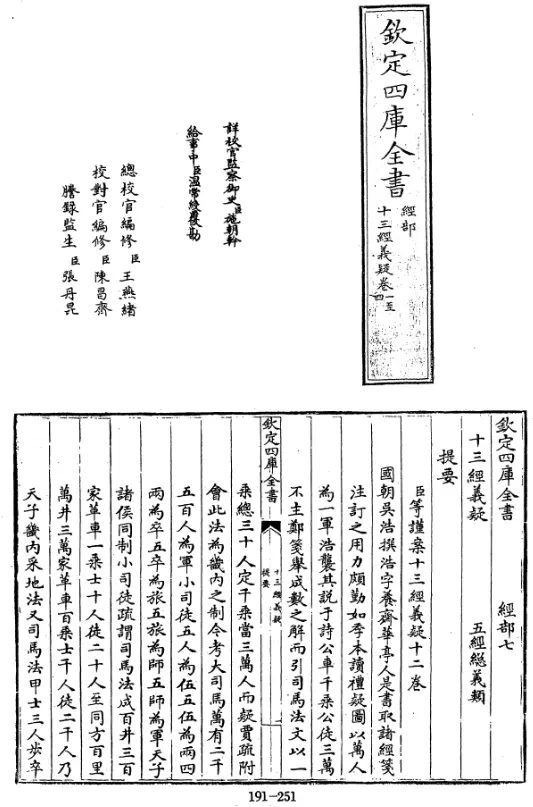 欽定四庫全書
經部
十三經義疑卷一至四
詳校官監察御史臣施朝幹
給事中臣溫常綬覆勘
總校官編修臣王燕緒
校對官編修臣陳昌齊
謄錄監生臣張丹昆
欽定四庫全書 經部七
十三經義疑 五經總義類
提要
臣等謹案十三經義疑十二卷
國朝吳浩撰浩字養齋華亭人是書取諸經箋
注訂之用力頗勤如季本讀禮疑圖以萬人
為一軍浩襲其說于詩公車千乘公徒三萬
不主鄭箋舉成數之解而引司馬法文以一
欽定四庫全書
十三經義疑
提要
乘總三十人定千乘當三萬人而疑賈疏附
會此法為畿內之制今考大司馬萬有二千
五百人為軍小司徒五人為伍五伍為兩四
兩為卒五卒為旅五旅為師五師為軍天子
諸侯同制小司徒疏謂司馬法成百井三百
家革車一乘士十人徒二十人至同方百里
萬井三萬家革車百乘士千人徒二千人乃
天子畿內采地法又司馬法甲士三人步卒
191-251